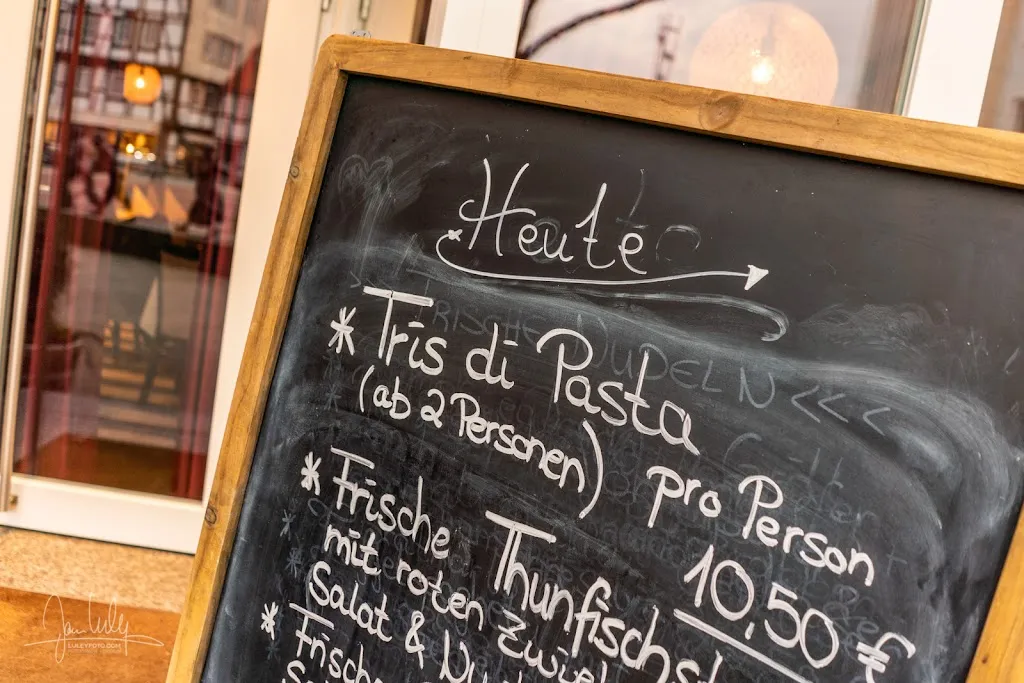 Heute
* Tris di Pasta
(ab 2 Personen) pro Person
10,50 €
* Frische Thunfischst
mit roten Zwiebel
Salat & Nu
* Frische
LULEYFOTO.COM